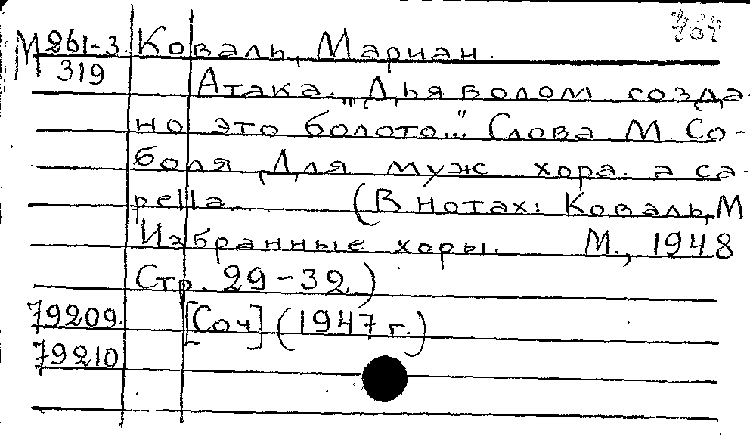 М 261-3 Коваль, Мариан.
319 Атака. "Дьяволом созда-
но это болото..." Слова М Со-
боля Для муж хора. а ca-
pella. (В нотах: Коваль, М
Избранные хоры. М., 1948
Стр. 29-32.)
79209. [Соч] (1947 г.)
79210